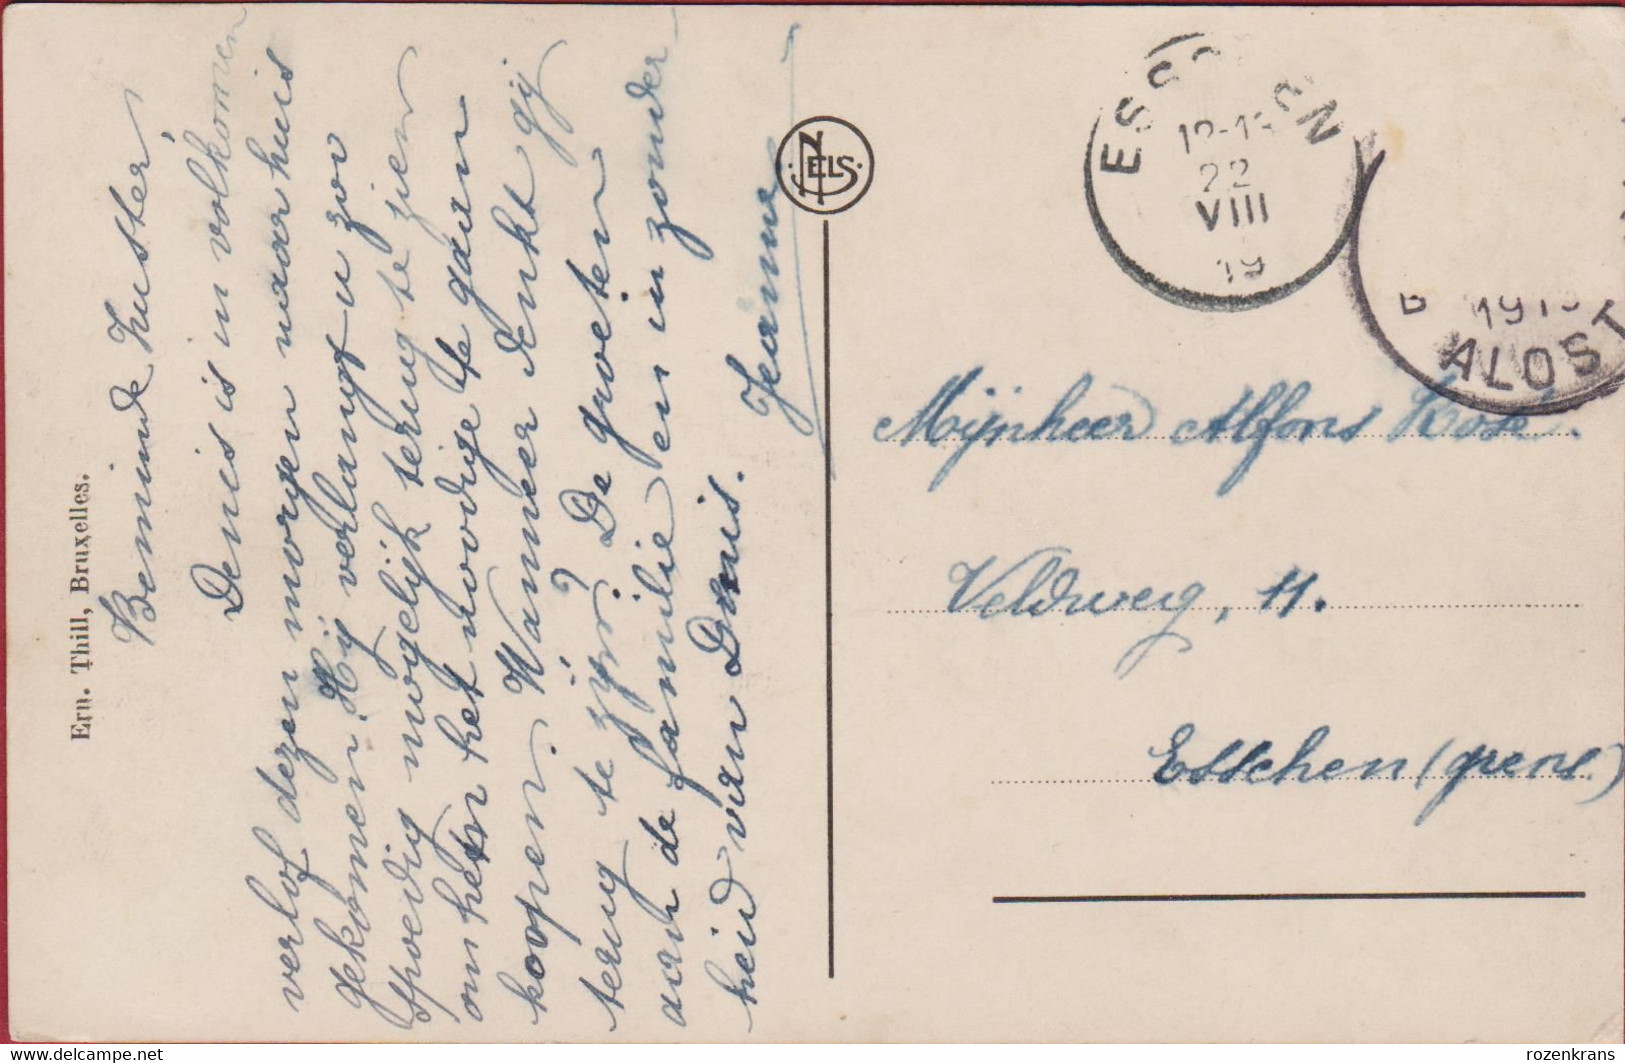 Beminde Zuster,
Denis is in volkomen
verlof dezen morgen naar huis
gekomen. Hij verlangt u zoo
spoedig mogelijk terug te zien
om het noodige te gaan
koopen. Wanneer denkt gij
terug te zijn? De groeten
aan de familie en in zonder-
heid van Denis.
Jeanne
Ern. Thill, Bruxelles.
NELS
ESSCHEN
22
VIII
19
B 1919
ALOST
Mijnheer Alfons
Veldweg, 11.
Esschen (grens)
rozenkrans